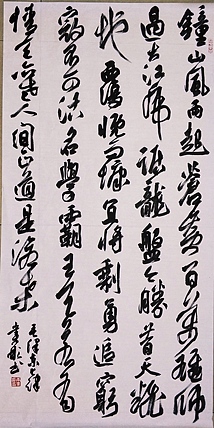 鐘山風雨起蒼黃百萬雄師
過大江虎踞龍盤今勝昔天翻
地覆慨而慷宜將剩勇追窮
寇不可沽名學霸王天若有
情天亦老人間正道是滄桑
毛澤東七律
書